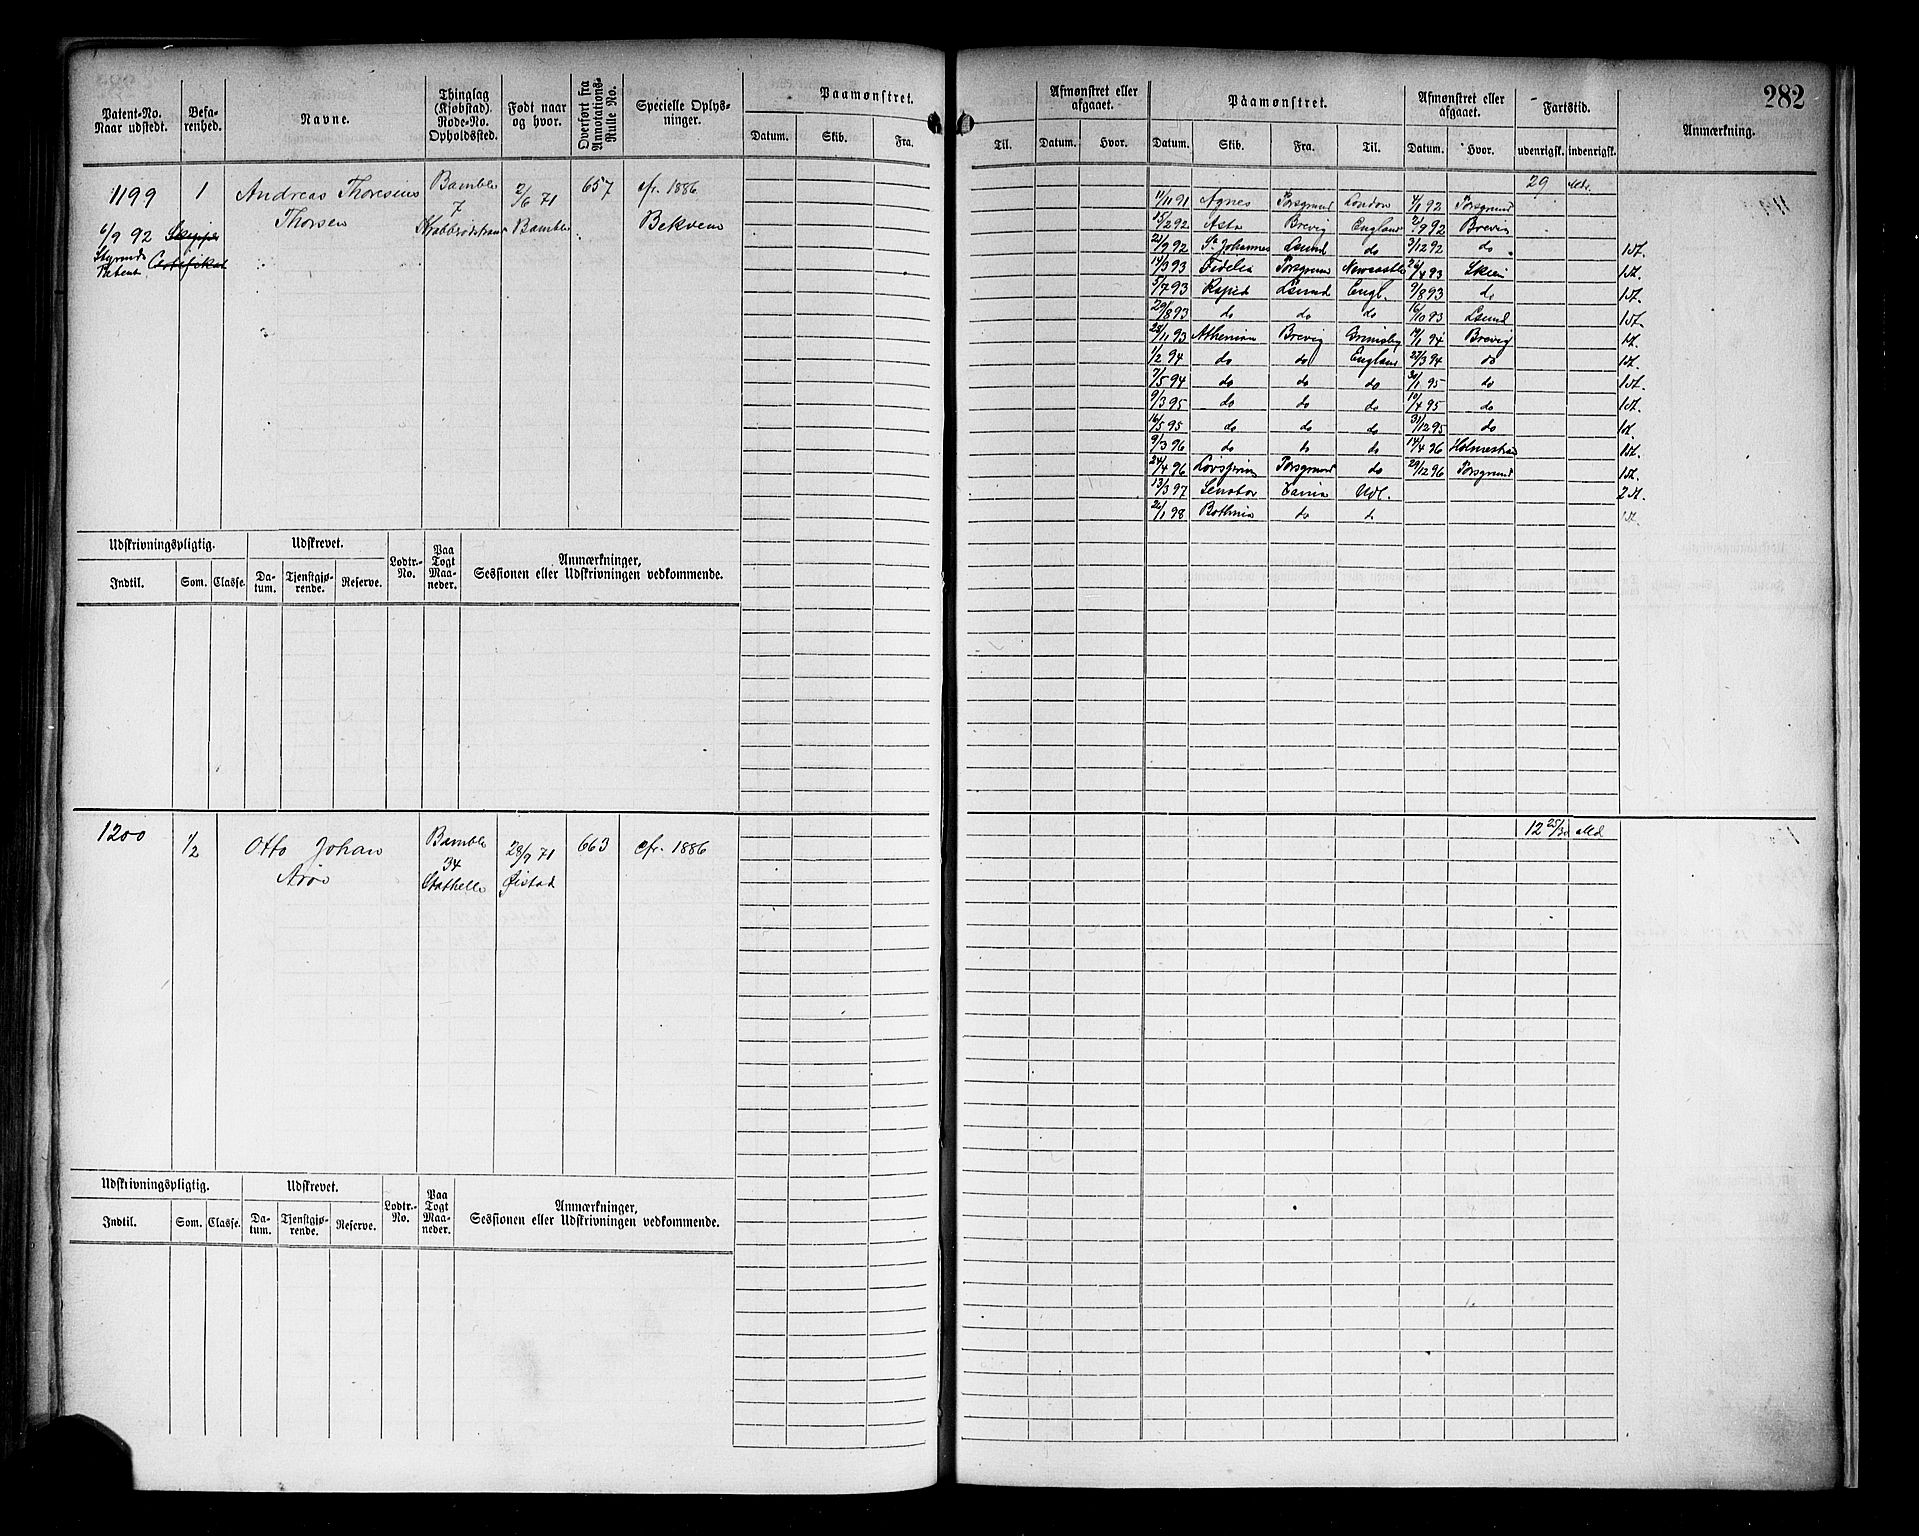 282
Patent-No. Naar udstedt. Befarenhed. Navne. Thinglag (Kjøbstad). Rode-No. Opholdssted. Født naar og hvor. Overført fra Annotations-Rulle No. Specielle Oplysninger. Paamønstret. Datum. Skib. Fra.
Til. Afmønstret eller afgaaet. Datum. Hvor. Paamønstret. Datum. Skib. Fra. Til. Afmønstret eller afgaaet. Datum. Hvor. Fartstid. udenrigsk. indenrigsk. Anmærkning.
1199 1 Andreas Thoresius Bamble 2/6 71 657 cfr. 1886
7
6/9 92 Skipper Thorsen Krabberødstrand Bamble Bekvem
Styrmds Certifikat
Patent
29 Mdr.
11/11 91 Agnes Porsgrund London 4/1 92 Porsgrund
15/2 92 Asta Brevig England 2/9 92 Brevig
21/9 92 St Johannes Lsund do 3/12 92 do 1st.
14/3 93 Fidelia Porsgrund Newcastle 26/4 93 Skien 1st.
5/7 93 Rapid Lsund Engl. 9/8 93 do 1st.
29/8 93 do do do 16/10 93 Lsund 1st.
28/11 93 Athenian Brevig Grimsby 19/1 94 Brevig 1st.
1/2 94 do do England 27/3 94 do 1st.
7/5 94 do do do 30/1 95 do 1st.
9/3 95 do do do 10/4 95 do 1st.
16/5 95 do do do 31/12 95 do 1st.
9/3 96 do do do 14/4 96 Holmestrand 1st.
24/4 96 Løvspring Porsgrund do 29/12 96 Porsgrund 1st.
13/3 97 Senator Udl. 2st.
26/1 98 Bothnia do do 1st.
Udskrivningspligtig. Udskrevet. Lodtr.-No. Paa Togt Maaneder. Anmærkninger, Sessionen eller Udskrivningen vedkommende.
Indtil. Som. Classe. Datum. Tjenstgjørende. Reserve.
1200 1/2 Otto Johan Bamble 28/9 71 663 cfr. 1886
34
Arøe Stathelle Øistad
12 25/30 Md
Udskrivningspligtig. Udskrevet. Lodtr.-No. Paa Togt Maaneder. Anmærkninger, Sessionen eller Udskrivningen vedkommende.
Indtil. Som. Classe. Datum. Tjenstgjørende. Reserve.